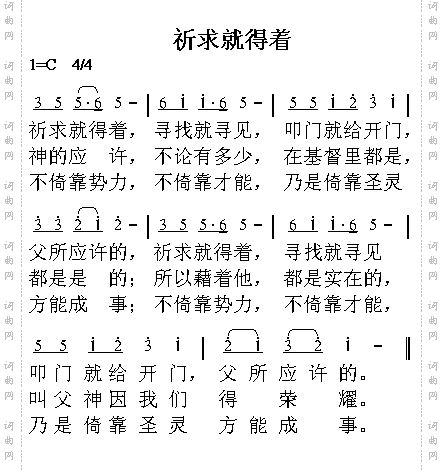 祈求就得着
1=C 4/4
3 5 5·6 5 - | 6 i i·6 5 - | 5 5 i 2 3 i |
祈求就得着， 寻找就寻见， 叩门就给开门，
神的应 许， 不论有多少， 在基督里都是，
不倚靠势力， 不倚靠才能， 乃是倚靠圣灵
3 3 2 i 2 - | 3 5 5·6 5 - | 6 i i·6 5 - |
父所应许的， 祈求就得着， 寻找就寻见
都是是 的； 所以藉着他， 都是实在的，
方能成 事； 不倚靠势力， 不倚靠才能，
5 5 i 2 3 i | 2 i 3 2 i - ‖
叩 门 就 给 开 门， 父 所 应 许 的。
叫 父 神 因 我 们 得 荣 耀。
乃 是 倚 靠 圣 灵 方 能 成 事。